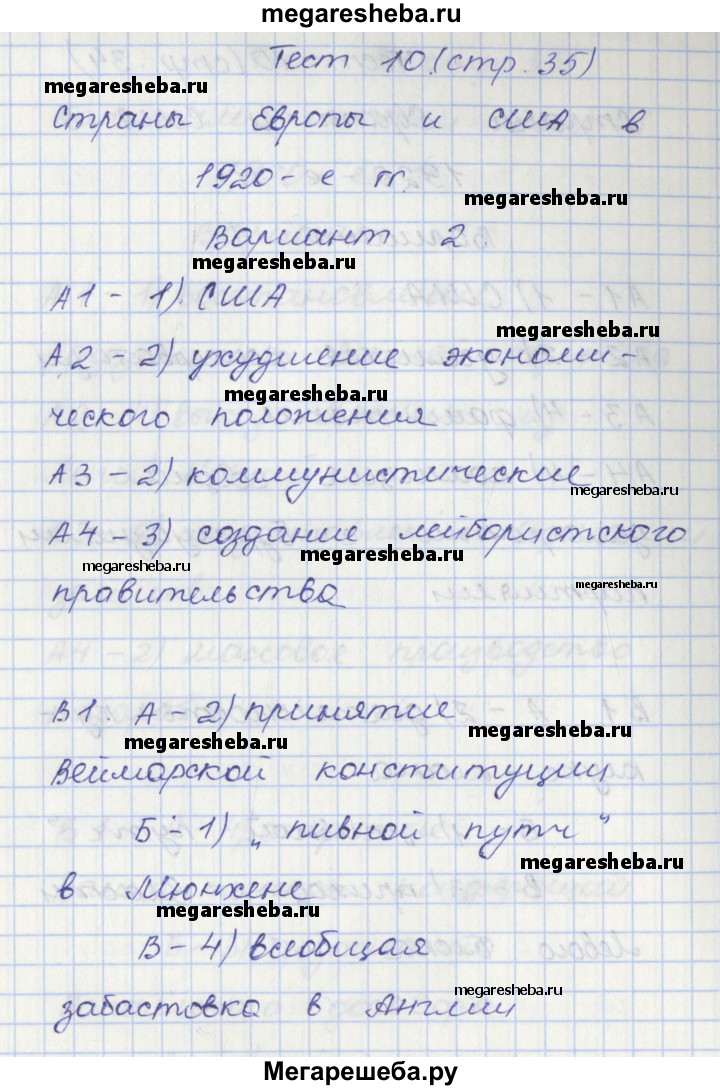 megaresheba.ru
Тест 10 (стр. 35)
megaresheba.ru
Страны Европы и США в
1920-е гг.
megaresheba.ru
Вариант 2
megaresheba.ru
А1 - 1) США
megaresheba.ru
А2 - 2) ухудшение экономи-
megaresheba.ru
ческого положения
А3 - 2) коммунистические
megaresheba.ru
А4 - 3) создание лейбористского
megaresheba.ru
megaresheba.ru
megaresheba.ru
правительства
В1. А - 2) принятие
megaresheba.ru
megaresheba.ru
Веймарской конституции
Б - 1) „пивной путч"
megaresheba.ru
в Мюнхене
megaresheba.ru
В - 4) всеобщая
megaresheba.ru
забастовка в Англии
Мегарешеба.ру